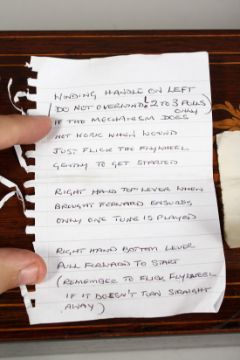 WINDING HANDLE ON LEFT
(DO NOT OVERWIND! 2 TO 3 PULLS
ONLY)
IF THE MECHANISM DOES
NOT WORK WHEN WOUND
JUST FLICK THE FLYWHEEL
GENTLY TO GET STARTED
RIGHT HAND TOP LEVER WHEN
BROUGHT FORWARD ENSURES
ONLY ONE TUNE IS PLAYED
RIGHT HAND BOTTOM LEVER
PULL FORWARD TO START
(REMEMBER TO FLICK FLYWHEEL
IF IT DOESN'T TURN STRAIGHT
AWAY)